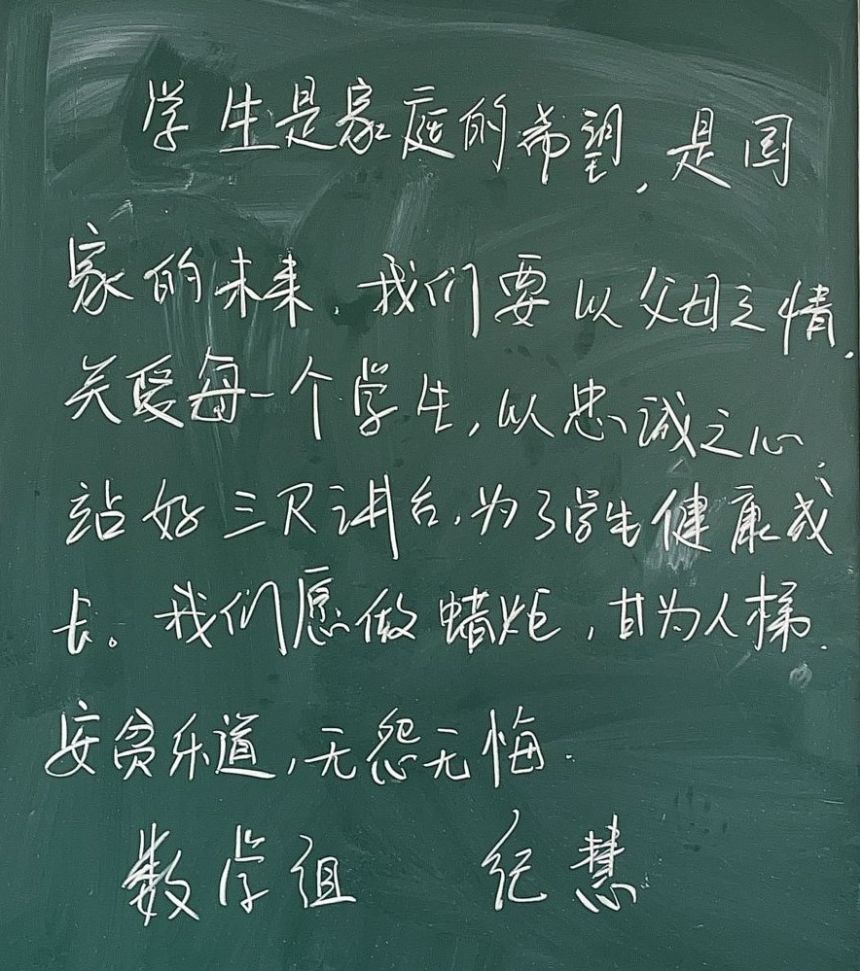 学生是家庭的希望,是国
家的未来.我们要以父母之情,
关爱每一个学生,以忠诚之心
站好三尺讲台,为了学生健康成
长。我们愿做蜡炬,甘为人梯.
安贫乐道,无怨无悔.
数学组 纪慧